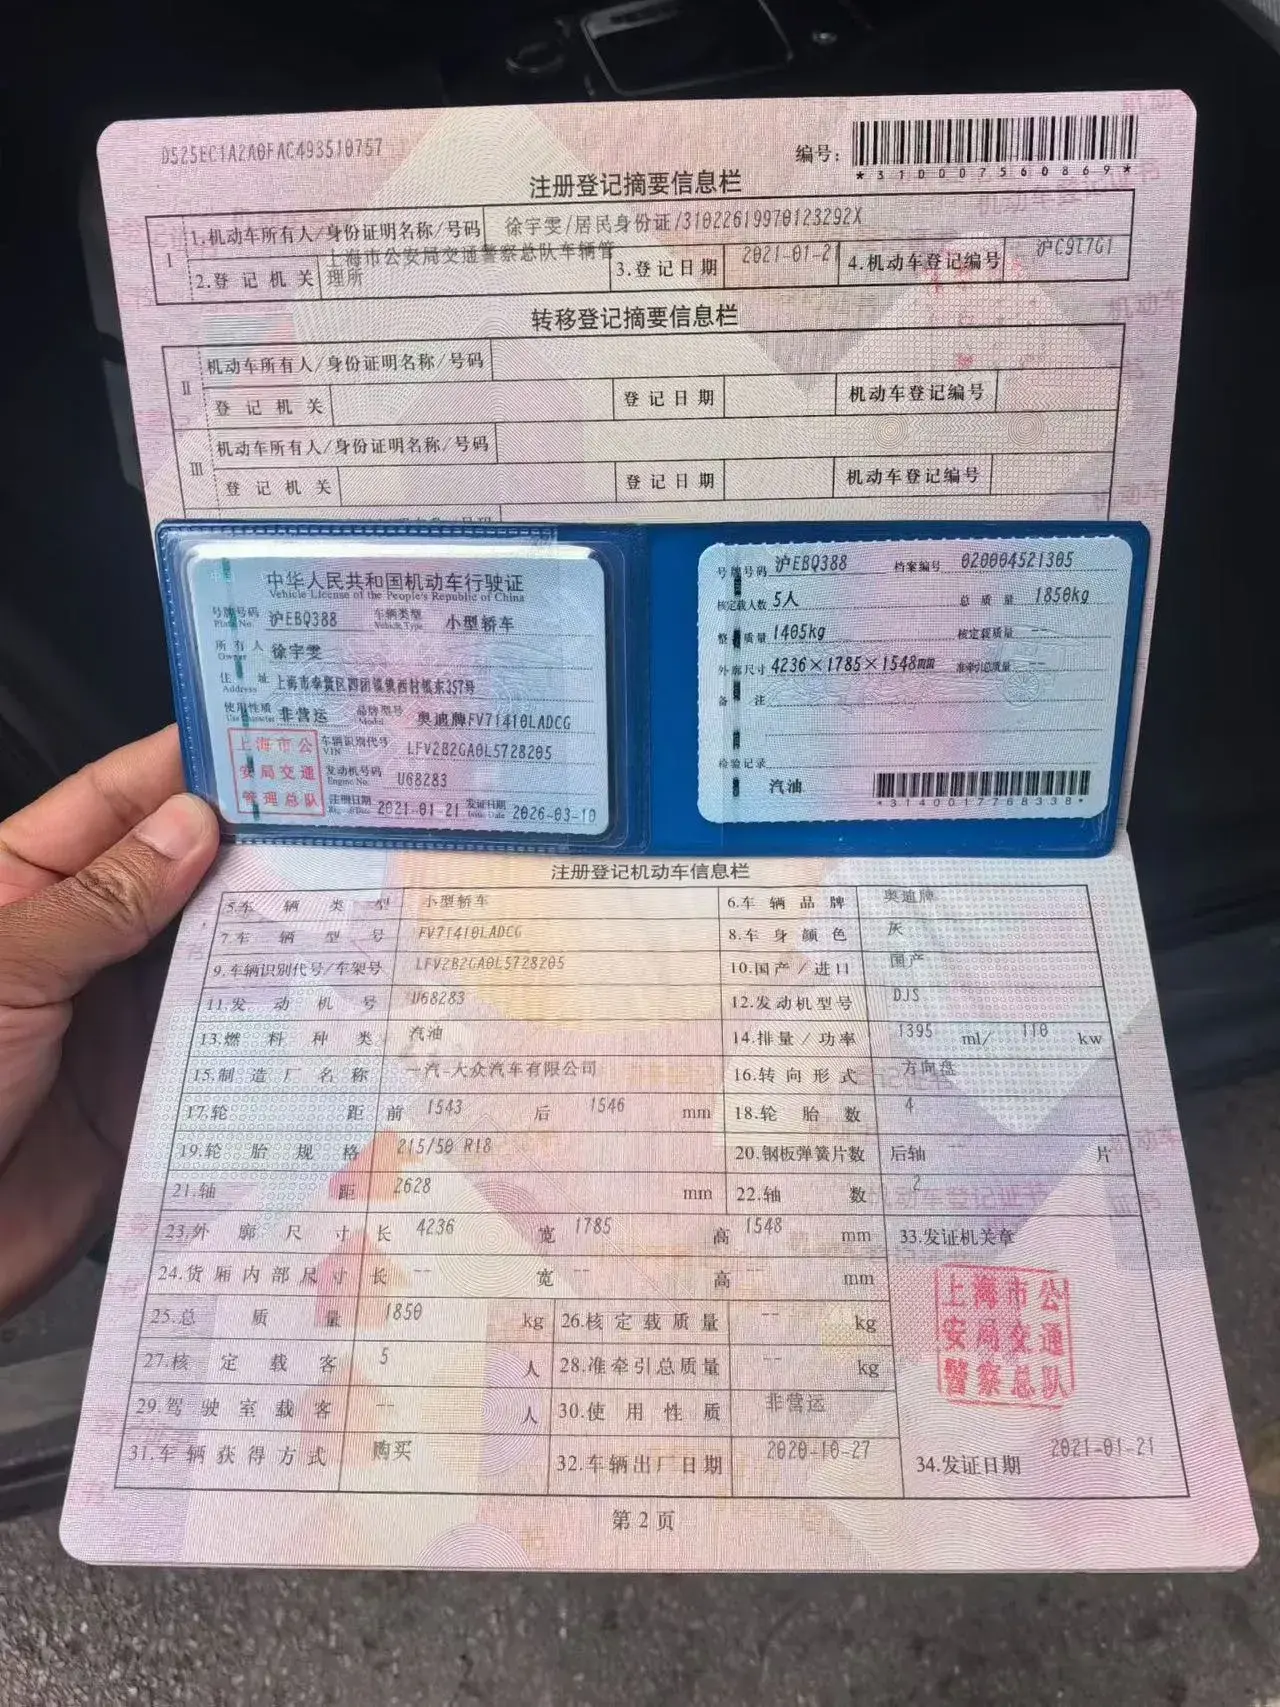 D525EC1A2A0FAC493510757
编号：
*310007560869*
注册登记摘要信息栏
I
1.机动车所有人/身份证明名称/号码 徐宇雯/居民身份证/31022619970123292X
2.登记机关 上海市公安局交通警察总队车辆管理所 3.登记日期 2021-01-21 4.机动车登记编号 沪C9T7G1
转移登记摘要信息栏
II
机动车所有人/身份证明名称/号码
登记机关 登记日期 机动车登记编号
III
机动车所有人/身份证明名称/号码
登记机关 登记日期 机动车登记编号
中华人民共和国机动车行驶证
Vehicle License of the People's Republic of China
号牌号码 Plate No. 沪EBQ388 车辆类型 Vehicle Type 小型轿车
所有人 Owner 徐宇雯
住址 Address 上海市奉贤区四团镇镇西村镇东357号
使用性质 Use Character 非营运 品牌型号 Model 奥迪牌FV71410LADCG
上海市公安局交通管理总队
车辆识别代号 VIN LFV2B2GA0L5728205
发动机号码 Engine No. U68283
注册日期 2021-01-21 发证日期 Issue Date 2026-03-10
号牌号码 沪EBQ388 档案编号 020004521305
核定载人数 5人 总质量 1850kg
整备质量 1405kg 核定载质量 --
外廓尺寸 4236×1785×1548mm 准牵引总质量 --
备注
检验记录
汽油
*3140017768338*
注册登记机动车信息栏
5.车辆类型 小型轿车 6.车辆品牌 奥迪牌
7.车辆型号 FV71410LADCG 8.车身颜色 灰
9.车辆识别代号/车架号 LFV2B2GA0L5728205 10.国产/进口 国产
11.发动机号 U68283 12.发动机型号 DJS
13.燃料种类 汽油 14.排量/功率 1395 ml/ 110 kw
15.制造厂名称 一汽-大众汽车有限公司 16.转向形式 方向盘
17.轮距 前 1543 后 1546 mm 18.轮胎数 4
19.轮胎规格 215/50 R18 20.钢板弹簧片数 后轴 片
21.轴距 2628 mm 22.轴数 2
23.外廓尺寸 长 4236 宽 1785 高 1548 mm 33.发证机关章
24.货厢内部尺寸 长 -- 宽 -- 高 -- mm
25.总质量 1850 kg 26.核定载质量 -- kg
上海市公安局交通警察总队
27.核定载客 5 人 28.准牵引总质量 -- kg
29.驾驶室载客 -- 人 30.使用性质 非营运
31.车辆获得方式 购买 32.车辆出厂日期 2020-10-27 34.发证日期 2021-01-21
第2页